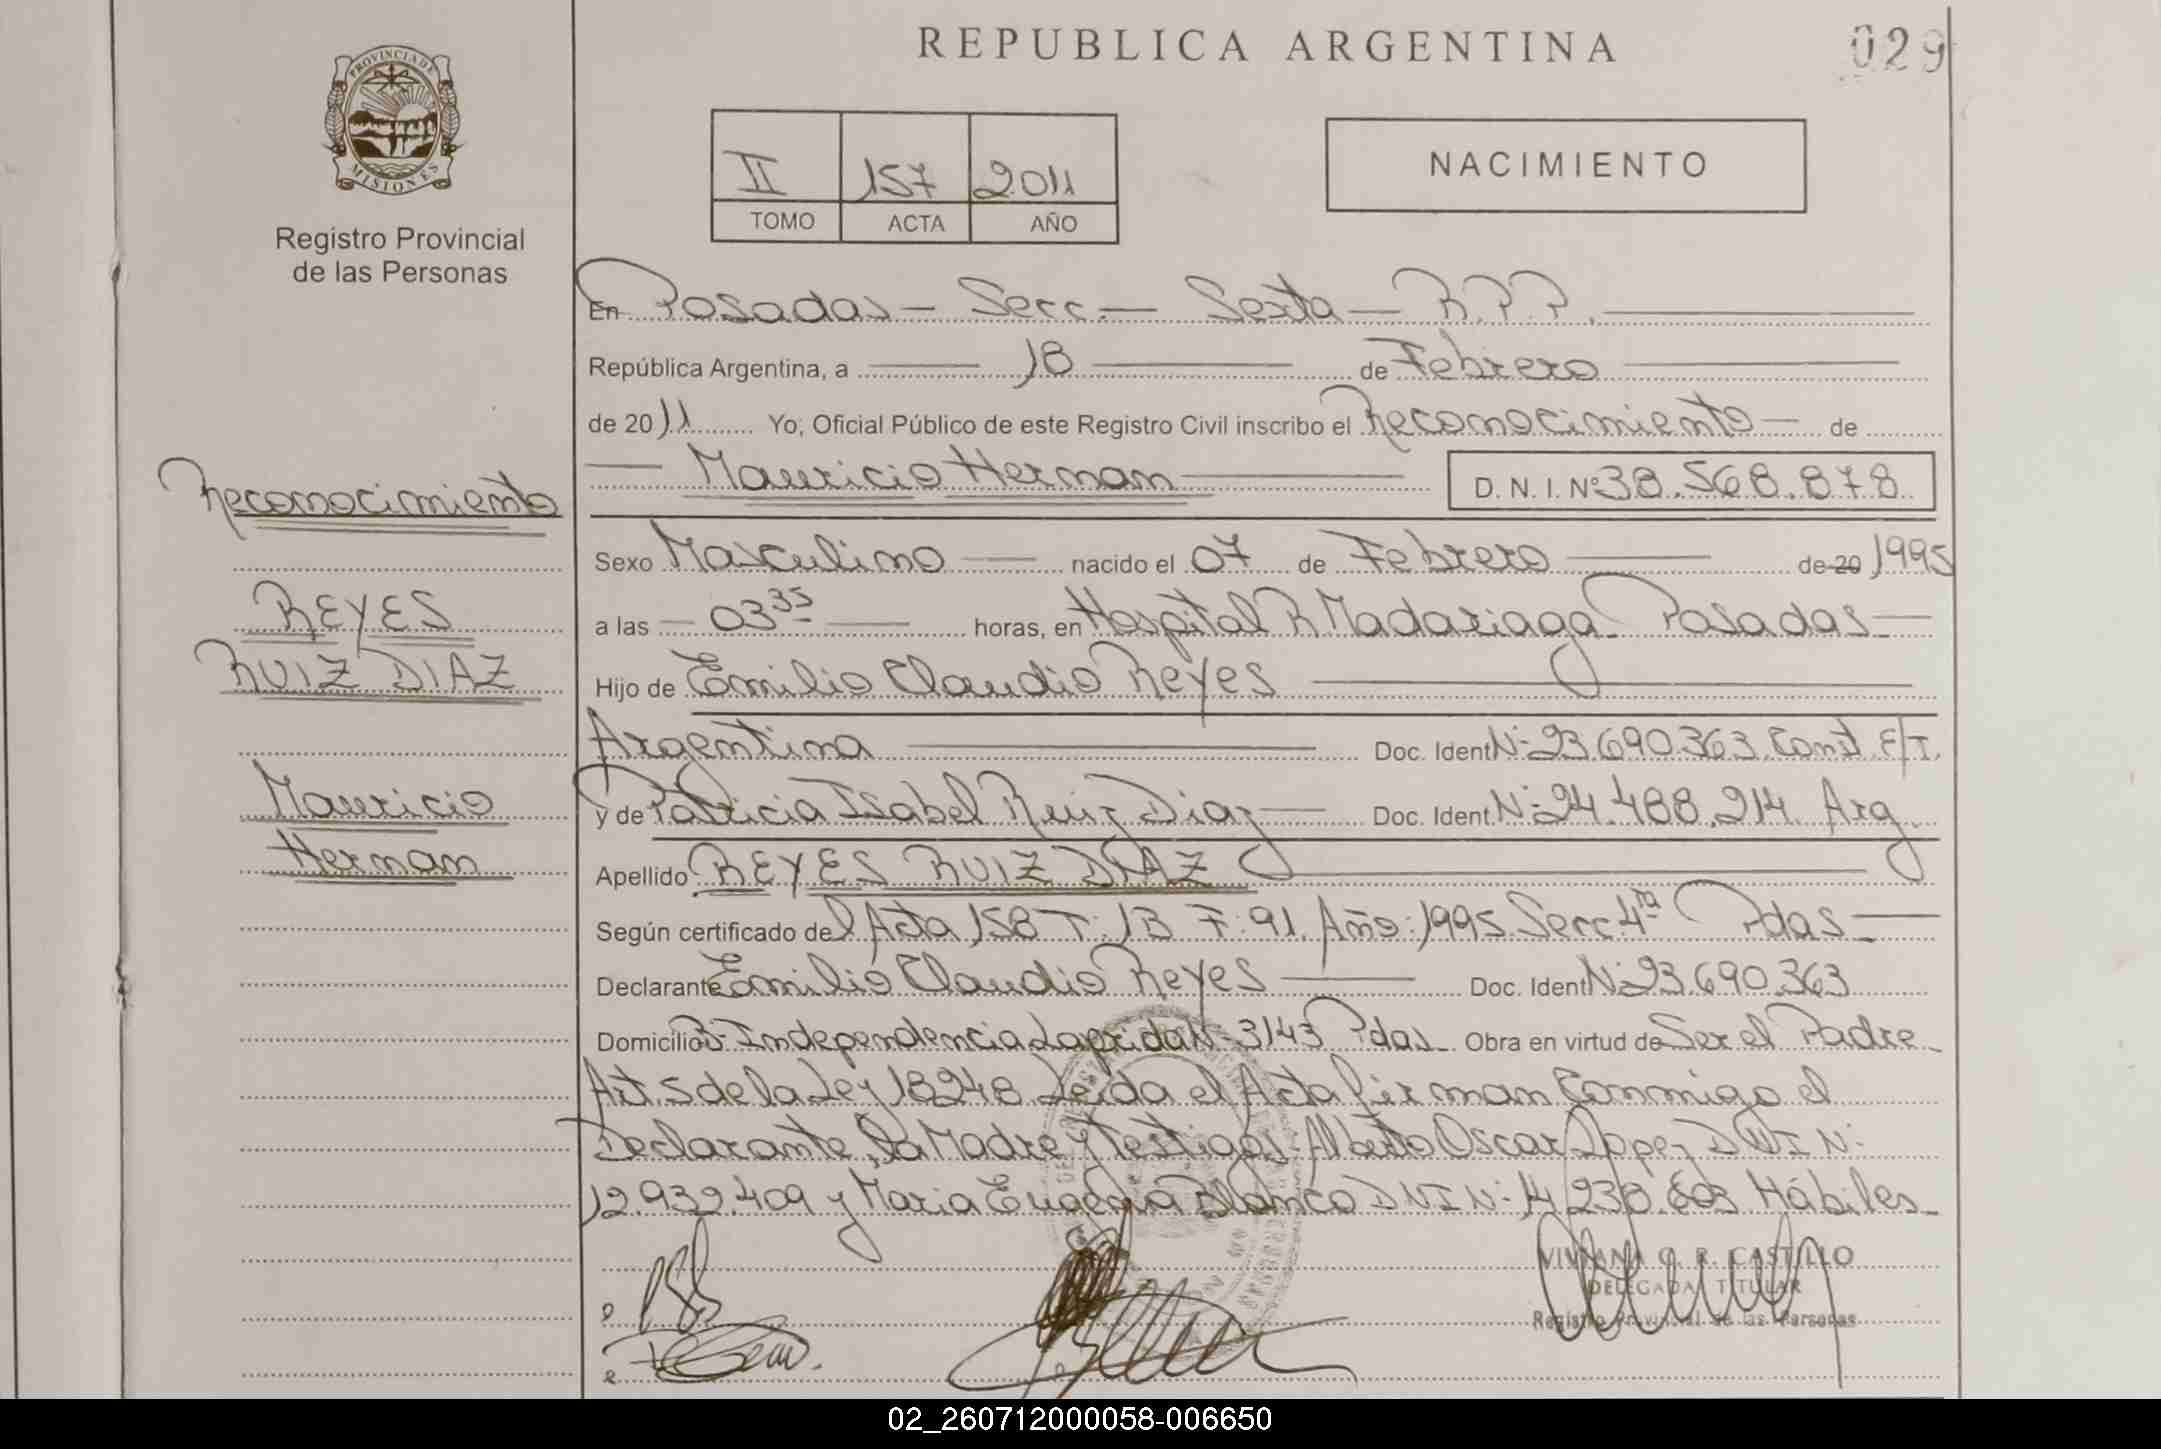 REPUBLICA ARGENTINA
029
PROVINCIA DE
MISIONES
Registro Provincial
de las Personas
II 157 2011
TOMO ACTA AÑO
NACIMIENTO
En Posadas — Secc. — Sexta — R.P.P.
República Argentina, a — 18 — de Febrero
de 2011 Yo, Oficial Público de este Registro Civil inscribo el Reconocimiento — de
— Mauricio Hernan — D. N. I. Nº 38.568.878
Sexo Masculino — nacido el 07 de Febrero — de 20 1995
a las — 03 35 — horas, en Hospital R Madariaga Posadas —
Hijo de Emilio Claudio Reyes —
Argentina — Doc. Ident. Nº 23.690.363. F/I.
y de Patricia Isabel Ruiz Diaz — Doc. Ident. Nº 24.488.214. Arg
Apellido REYES RUIZ DIAZ —
Según certificado del Acta 158 T: 1B F: 91. Año: 1995. Secc 4ta Pdas —
Declarante Emilio Claudio Reyes — Doc. Ident. Nº 23.690.363
Domicilio Bº Independencia Laprida Nº 3143 Pdas — Obra en virtud de Ser el Padre
Art. 5 de la Ley 18248 Leida el Acta firman Conmigo el
Declarante, la Madre y Testigos Alberto Oscar Lopez DNI Nº
12.932.409 y Maria Eugenia Blanco DNI Nº 14.238. Hábiles
Reconocimiento
REYES
RUIZ DIAZ
Mauricio
Hernan
VIVIANA G. R. CASTILLO
DELEGADA TITULAR
Registro Provincial de las Personas
02_260712000058-006650